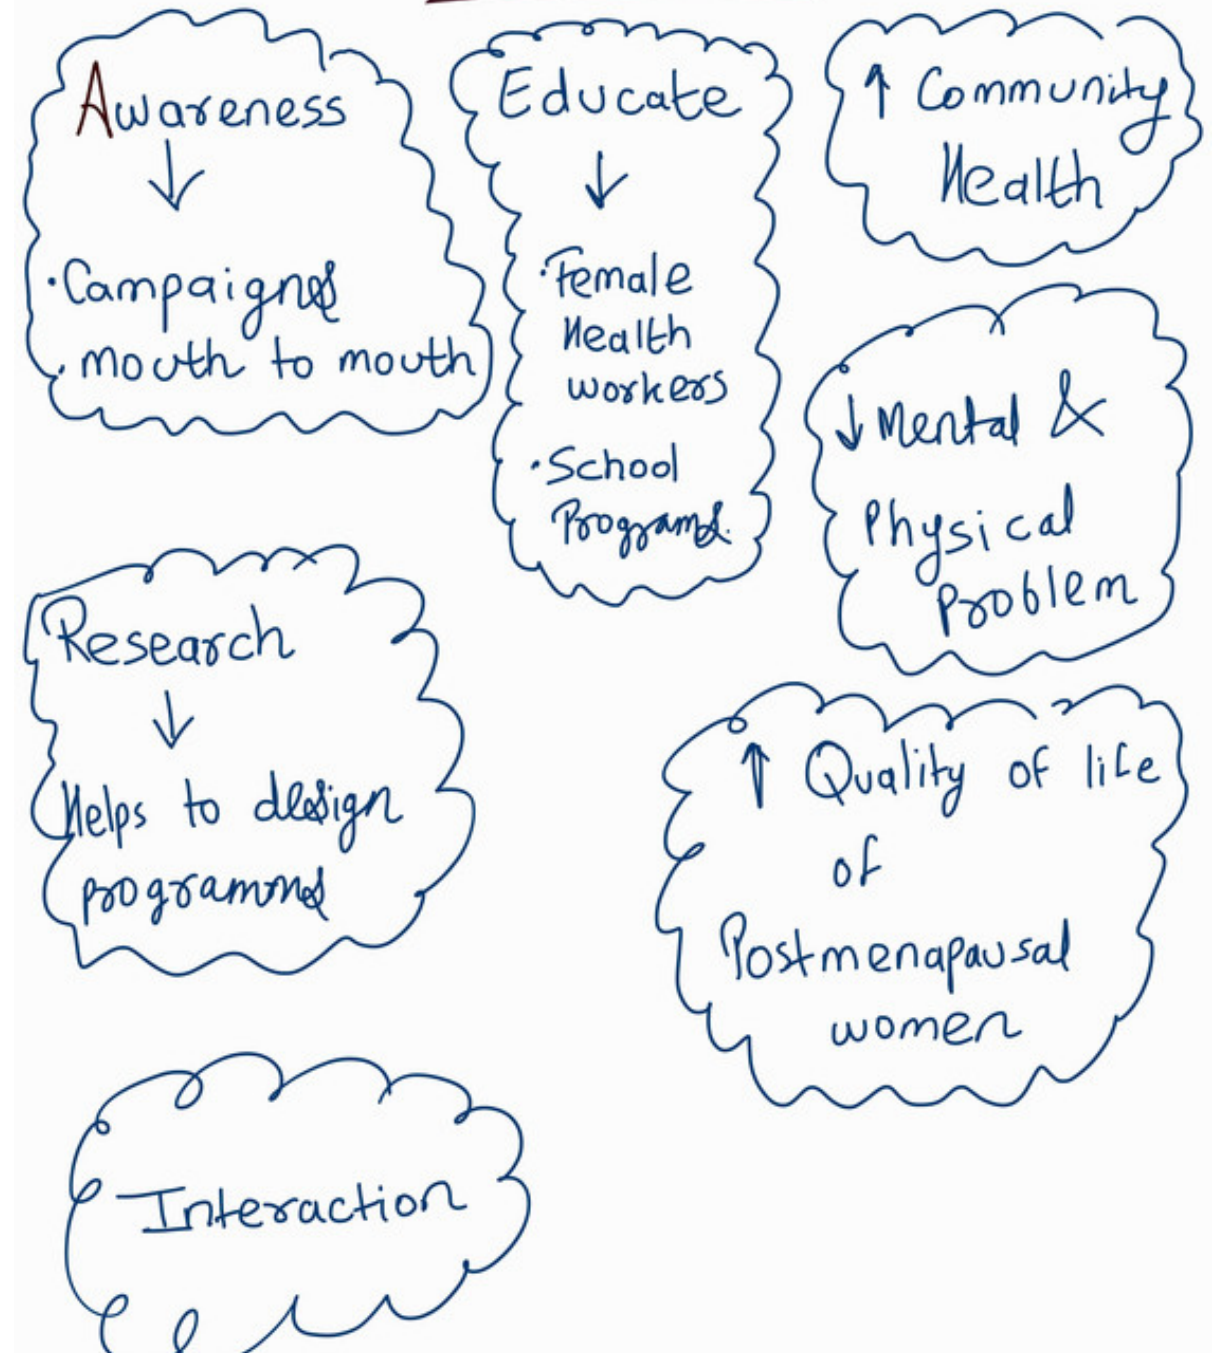 Awareness
↓
· Campaigns
· mouth to mouth
Educate
↓
· Female
Health
workers
· School
Programs.
↑ Community
Health
↓ Mental &
Physical
Problem
Research
↓
Helps to design
programms
↑ Quality of life
of
Postmenapausal
women
Interaction